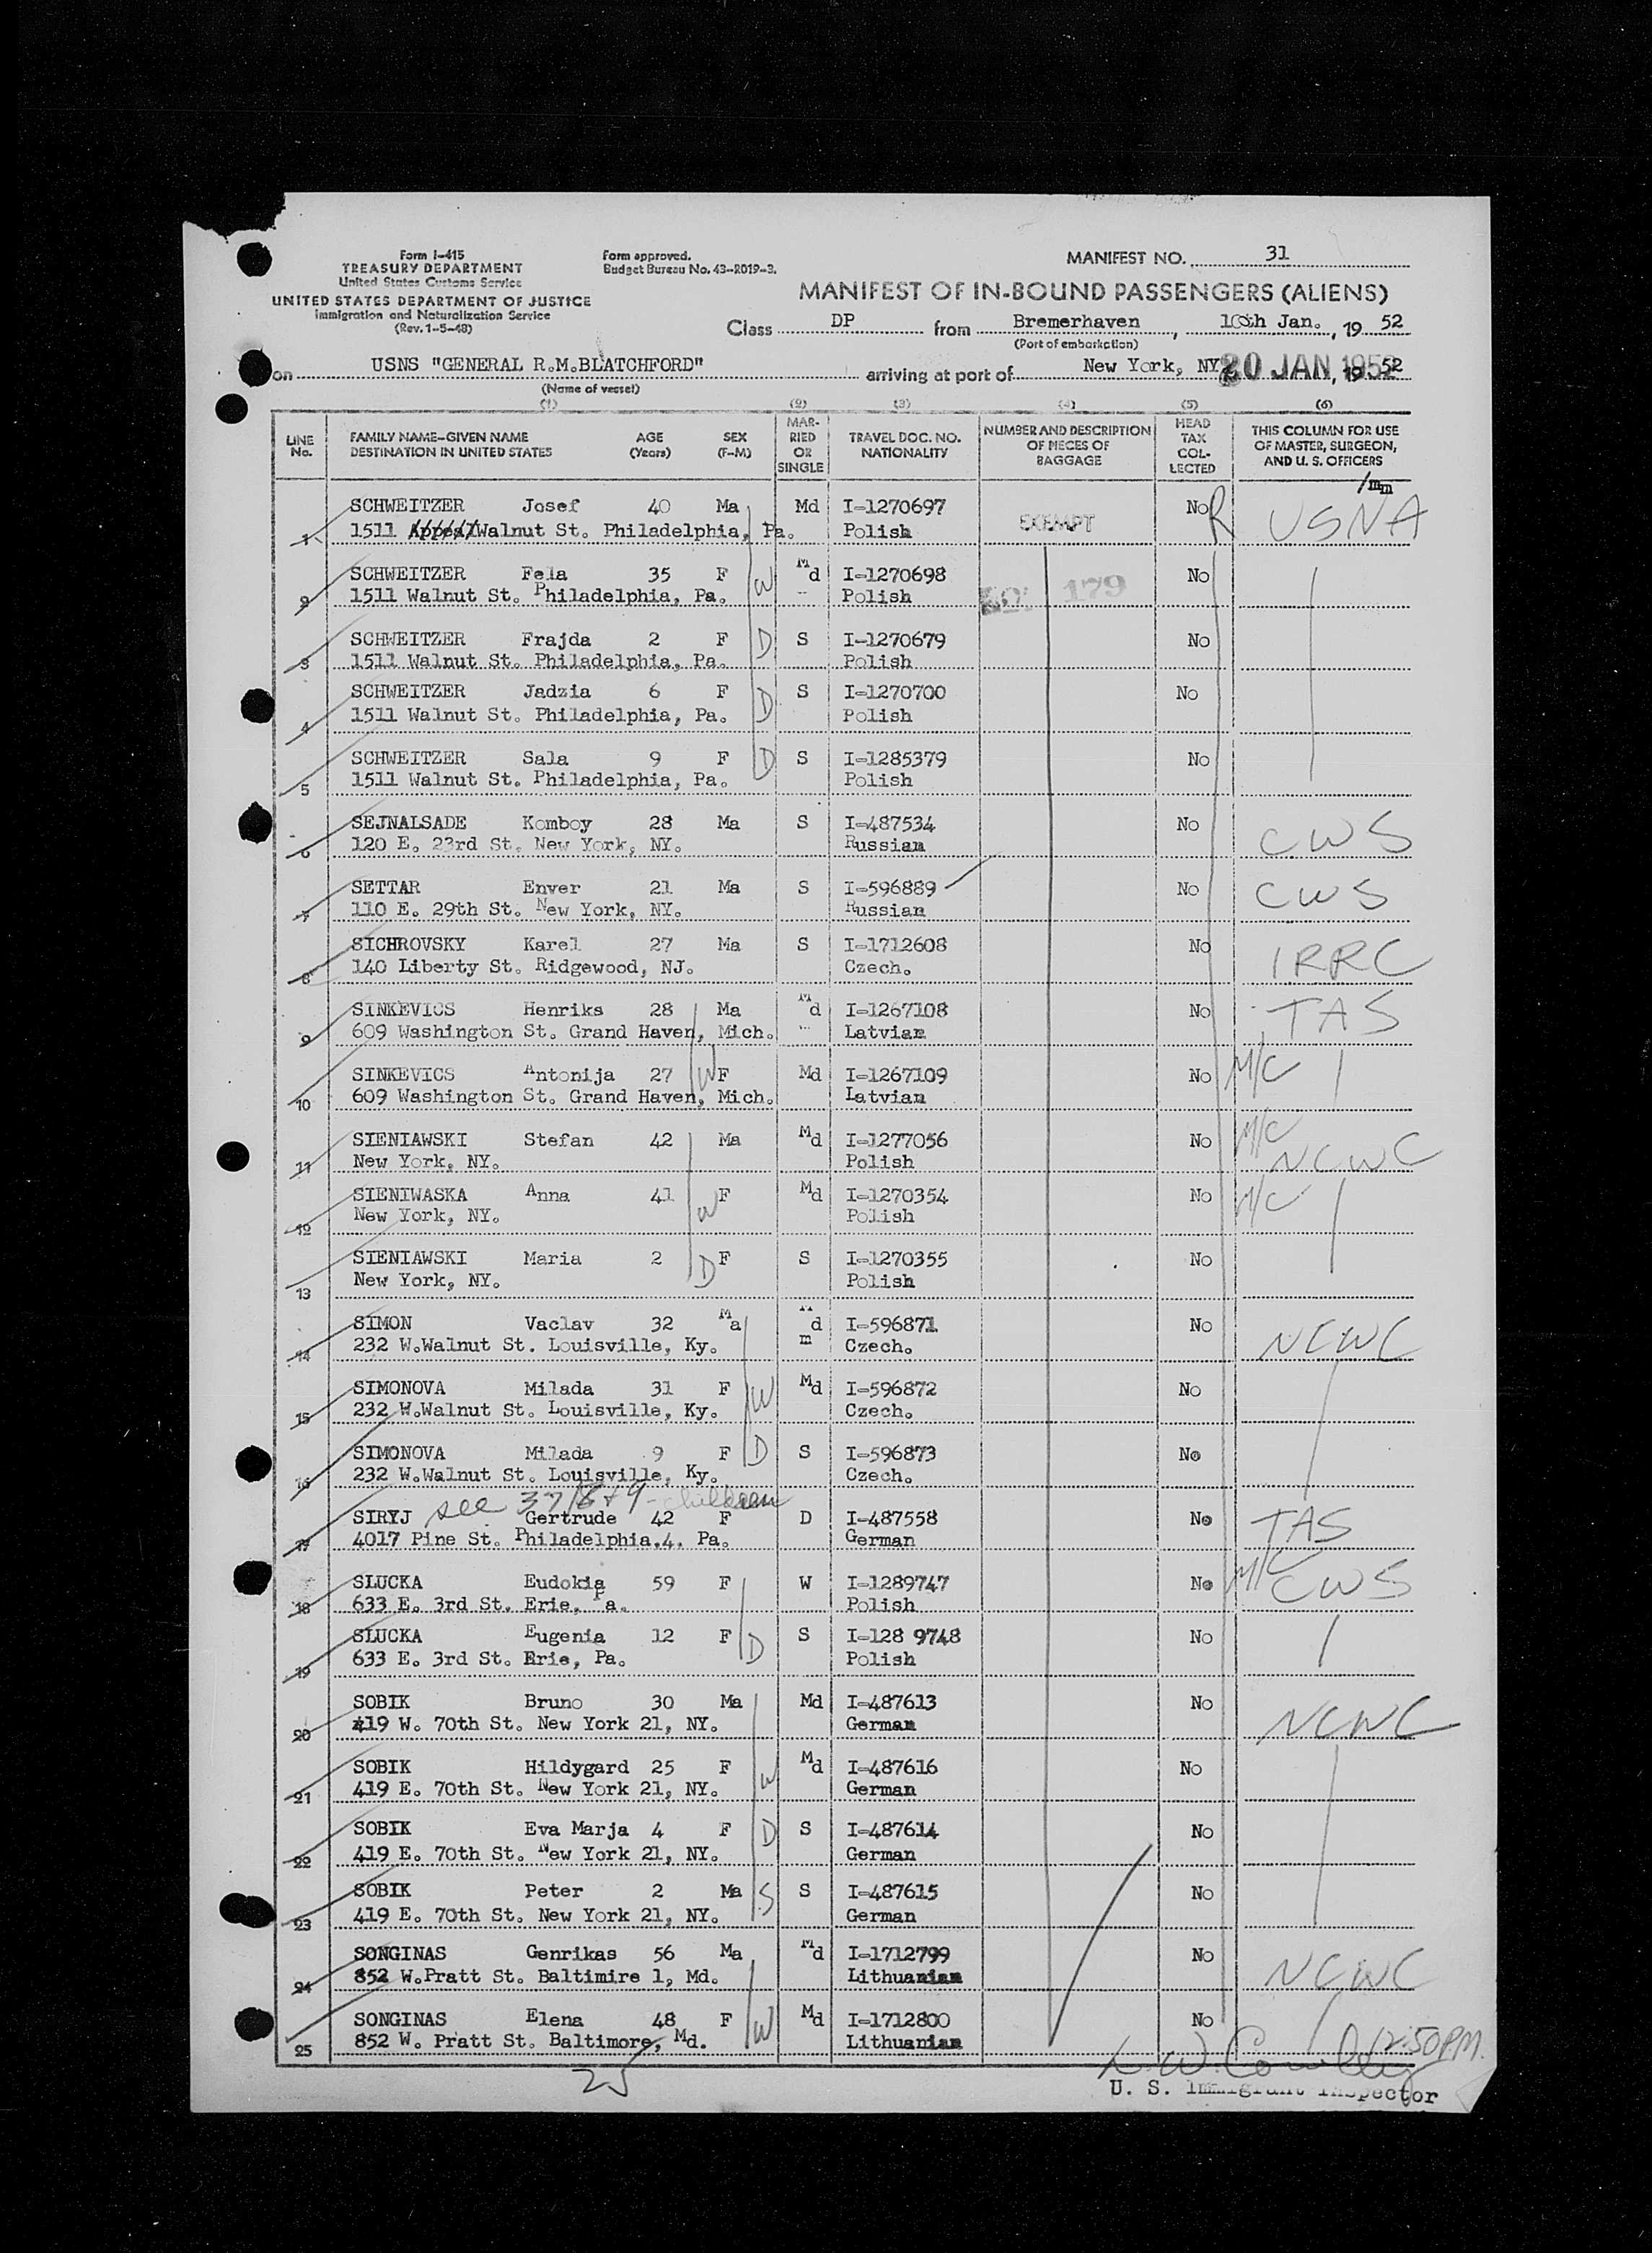 Form I-415
TREASURY DEPARTMENT
United States Customs Service
UNITED STATES DEPARTMENT OF JUSTICE
Immigration and Naturalization Service
(Rev. 1-5-48)
Form approved.
Budget Bureau No. 43-R019-3.
MANIFEST NO. 31
MANIFEST OF IN-BOUND PASSENGERS (ALIENS)
Class DP from Bremerhaven, 10th Jan., 19 52
(Port of embarkation)
on USNS "GENERAL R.M.BLATCHFORD" arriving at port of New York, NY 20 JAN 1952, 19 52
(Name of vessel)
(1) (2) (3) (4) (5) (6)
LINE No. FAMILY NAME-GIVEN NAME DESTINATION IN UNITED STATES AGE (Years) SEX (F-M) MARRIED OR SINGLE TRAVEL DOC. NO. NATIONALITY NUMBER AND DESCRIPTION OF PIECES OF BAGGAGE HEAD TAX COLLECTED THIS COLUMN FOR USE OF MASTER, SURGEON, AND U. S. OFFICERS
/mm
SCHWEITZER Josef 40 Ma Md I-1270697 EXEMPT No R USNA
1 1511 Walnut St. Philadelphia, Pa. Polish
SCHWEITZER Fela 35 F W Md I-1270698 179 No
2 1511 Walnut St. Philadelphia, Pa. Polish
SCHWEITZER Frajda 2 F D S I-1270679 No
3 1511 Walnut St. Philadelphia, Pa. Polish
SCHWEITZER Jadzia 6 F D S I-1270700 No
4 1511 Walnut St. Philadelphia, Pa. Polish
SCHWEITZER Sala 9 F D S I-1285379 No
5 1511 Walnut St. Philadelphia, Pa. Polish
SEJNALSADE Komboy 28 Ma S I-487534 No CWS
6 120 E. 23rd St. New York, NY. Russian
SETTAR Enver 21 Ma S I-596889 No CWS
7 110 E. 29th St. New York, NY. Russian
SICHROVSKY Karel 27 Ma S I-1712608 No IRRC
8 140 Liberty St. Ridgewood, NJ. Czech.
SINKEVICS Henriks 28 Ma Md I-1267108 No TAS
9 609 Washington St. Grand Haven, Mich. Latvian
SINKEVICS Antonija 27 W F Md I-1267109 No M/C
10 609 Washington St. Grand Haven, Mich. Latvian
SIENIAWSKI Stefan 42 Ma Md I-1277056 No M/C NCWC
11 New York, NY. Polish
SIENIWASKA Anna 41 W F Md I-1270354 No M/C
12 New York, NY. Polish
SIENIAWSKI Maria 2 D F S I-1270355 No
13 New York, NY. Polish
SIMON Vaclav 32 Ma d m I-596871 No NCWC
14 232 W.Walnut St. Louisville, Ky. Czech.
SIMONOVA Milada 31 F W Md I-596872 No
15 232 W.Walnut St. Louisville, Ky. Czech.
SIMONOVA Milada 9 F D S I-596873 No
16 232 W.Walnut St. Louisville, Ky. Czech.
see 37/8+9 - children
SIRYJ Gertrude 42 F D I-487558 No TAS
17 4017 Pine St. Philadelphia.4. Pa. German
SLUCKA Eudokia 59 F W I-1289747 No M/C CWS
18 633 E. 3rd St. Erie, Pa. Polish
SLUCKA Eugenia 12 F D S I-128 9748 No
19 633 E. 3rd St. Erie, Pa. Polish
SOBIK Bruno 30 Ma Md I-487613 No NCWC
20 419 W. 70th St. New York 21, NY. German
SOBIK Hildygard 25 F W Md I-487616 No
21 419 E. 70th St. New York 21, NY. German
SOBIK Eva Marja 4 F D S I-487614 No
22 419 E. 70th St. New York 21, NY. German
SOBIK Peter 2 Ma S S I-487615 No
23 419 E. 70th St. New York 21, NY. German
SONGINAS Genrikas 56 Ma Md I-1712799 No NCWC
24 852 W.Pratt St. Baltimire 1, Md. Lithuanian
SONGINAS Elena 48 F W Md I-1712800 No
25 852 W. Pratt St. Baltimore, Md. Lithuanian
25 12:50PM.
U. S. Immigrant Inspector